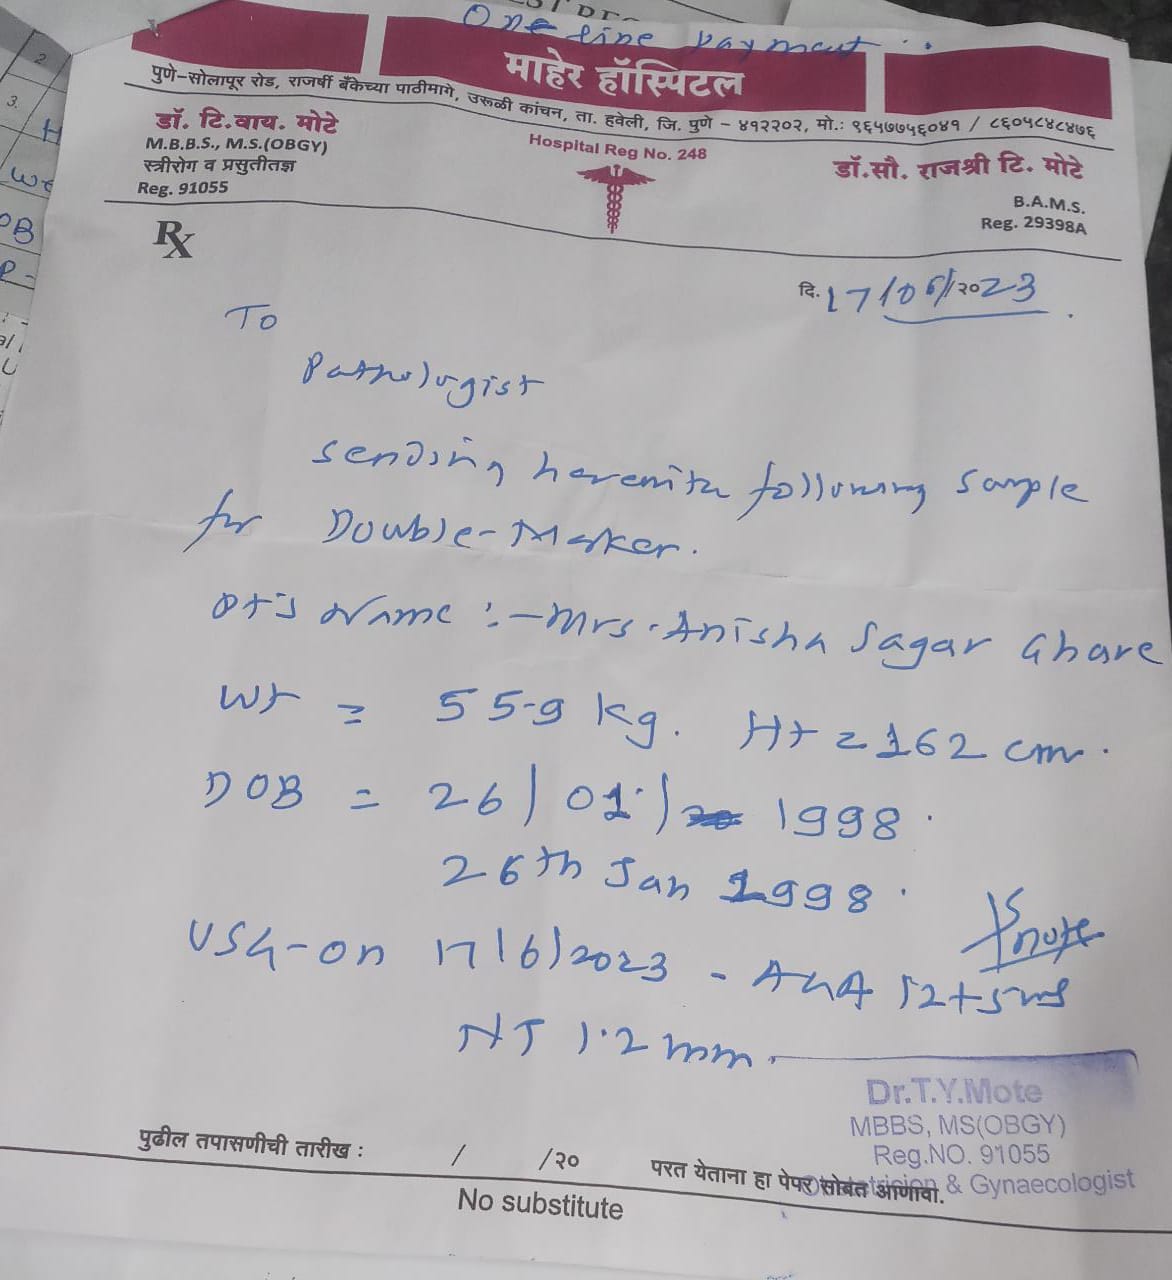 One line payment
माहेर हॉस्पिटल
पुणे-सोलापूर रोड, राजर्षी बँकेच्या पाठीमागे, उरूळी कांचन, ता. हवेली, जि. पुणे - ४१२२०२, मो.: ९६५७७५६०४१ / ८६०५८४८४७६
डॉ. टि.वाय. मोटे
M.B.B.S., M.S.(OBGY)
स्त्रीरोग व प्रसुतीतज्ञ
Reg. 91055
Hospital Reg No. 248
डॉ.सौ. राजश्री टि. मोटे
B.A.M.S.
Reg. 29398A
Rx
दि. 17/06/२०23
To
Pathologist
sending herewith following sample
for Double-Marker.
Pt's Name :- Mrs. Anisha Sagar Ghare
Wt = 55.9 kg. Ht = 162 cm.
DOB = 26/01/1998.
26th Jan 1998.
USG-on 17/6/2023 - AGA 12+5
NT 1.2 mm.
Dr.T.Y.Mote
MBBS, MS(OBGY)
Reg.NO. 91055
& Gynaecologist
पुढील तपासणीची तारीख : / /२०
परत येताना हा पेपर सोबत आणावा.
No substitute